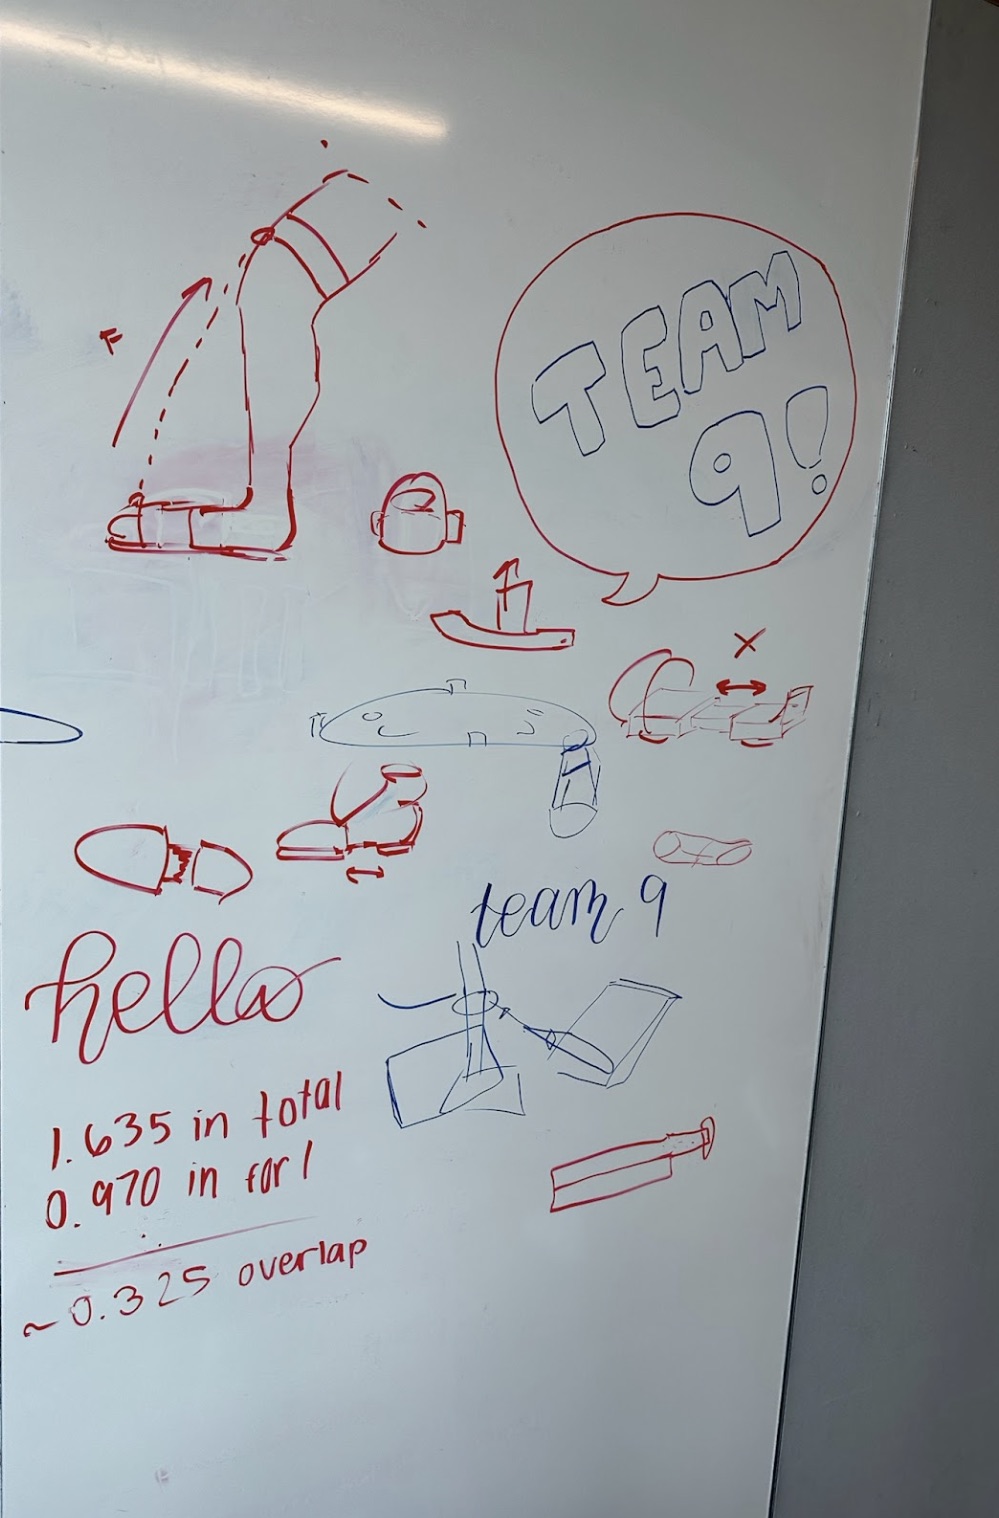 F
TEAM
9!
X
team 9
hello
1.635 in total
0.970 in for 1
~0.325 overlap